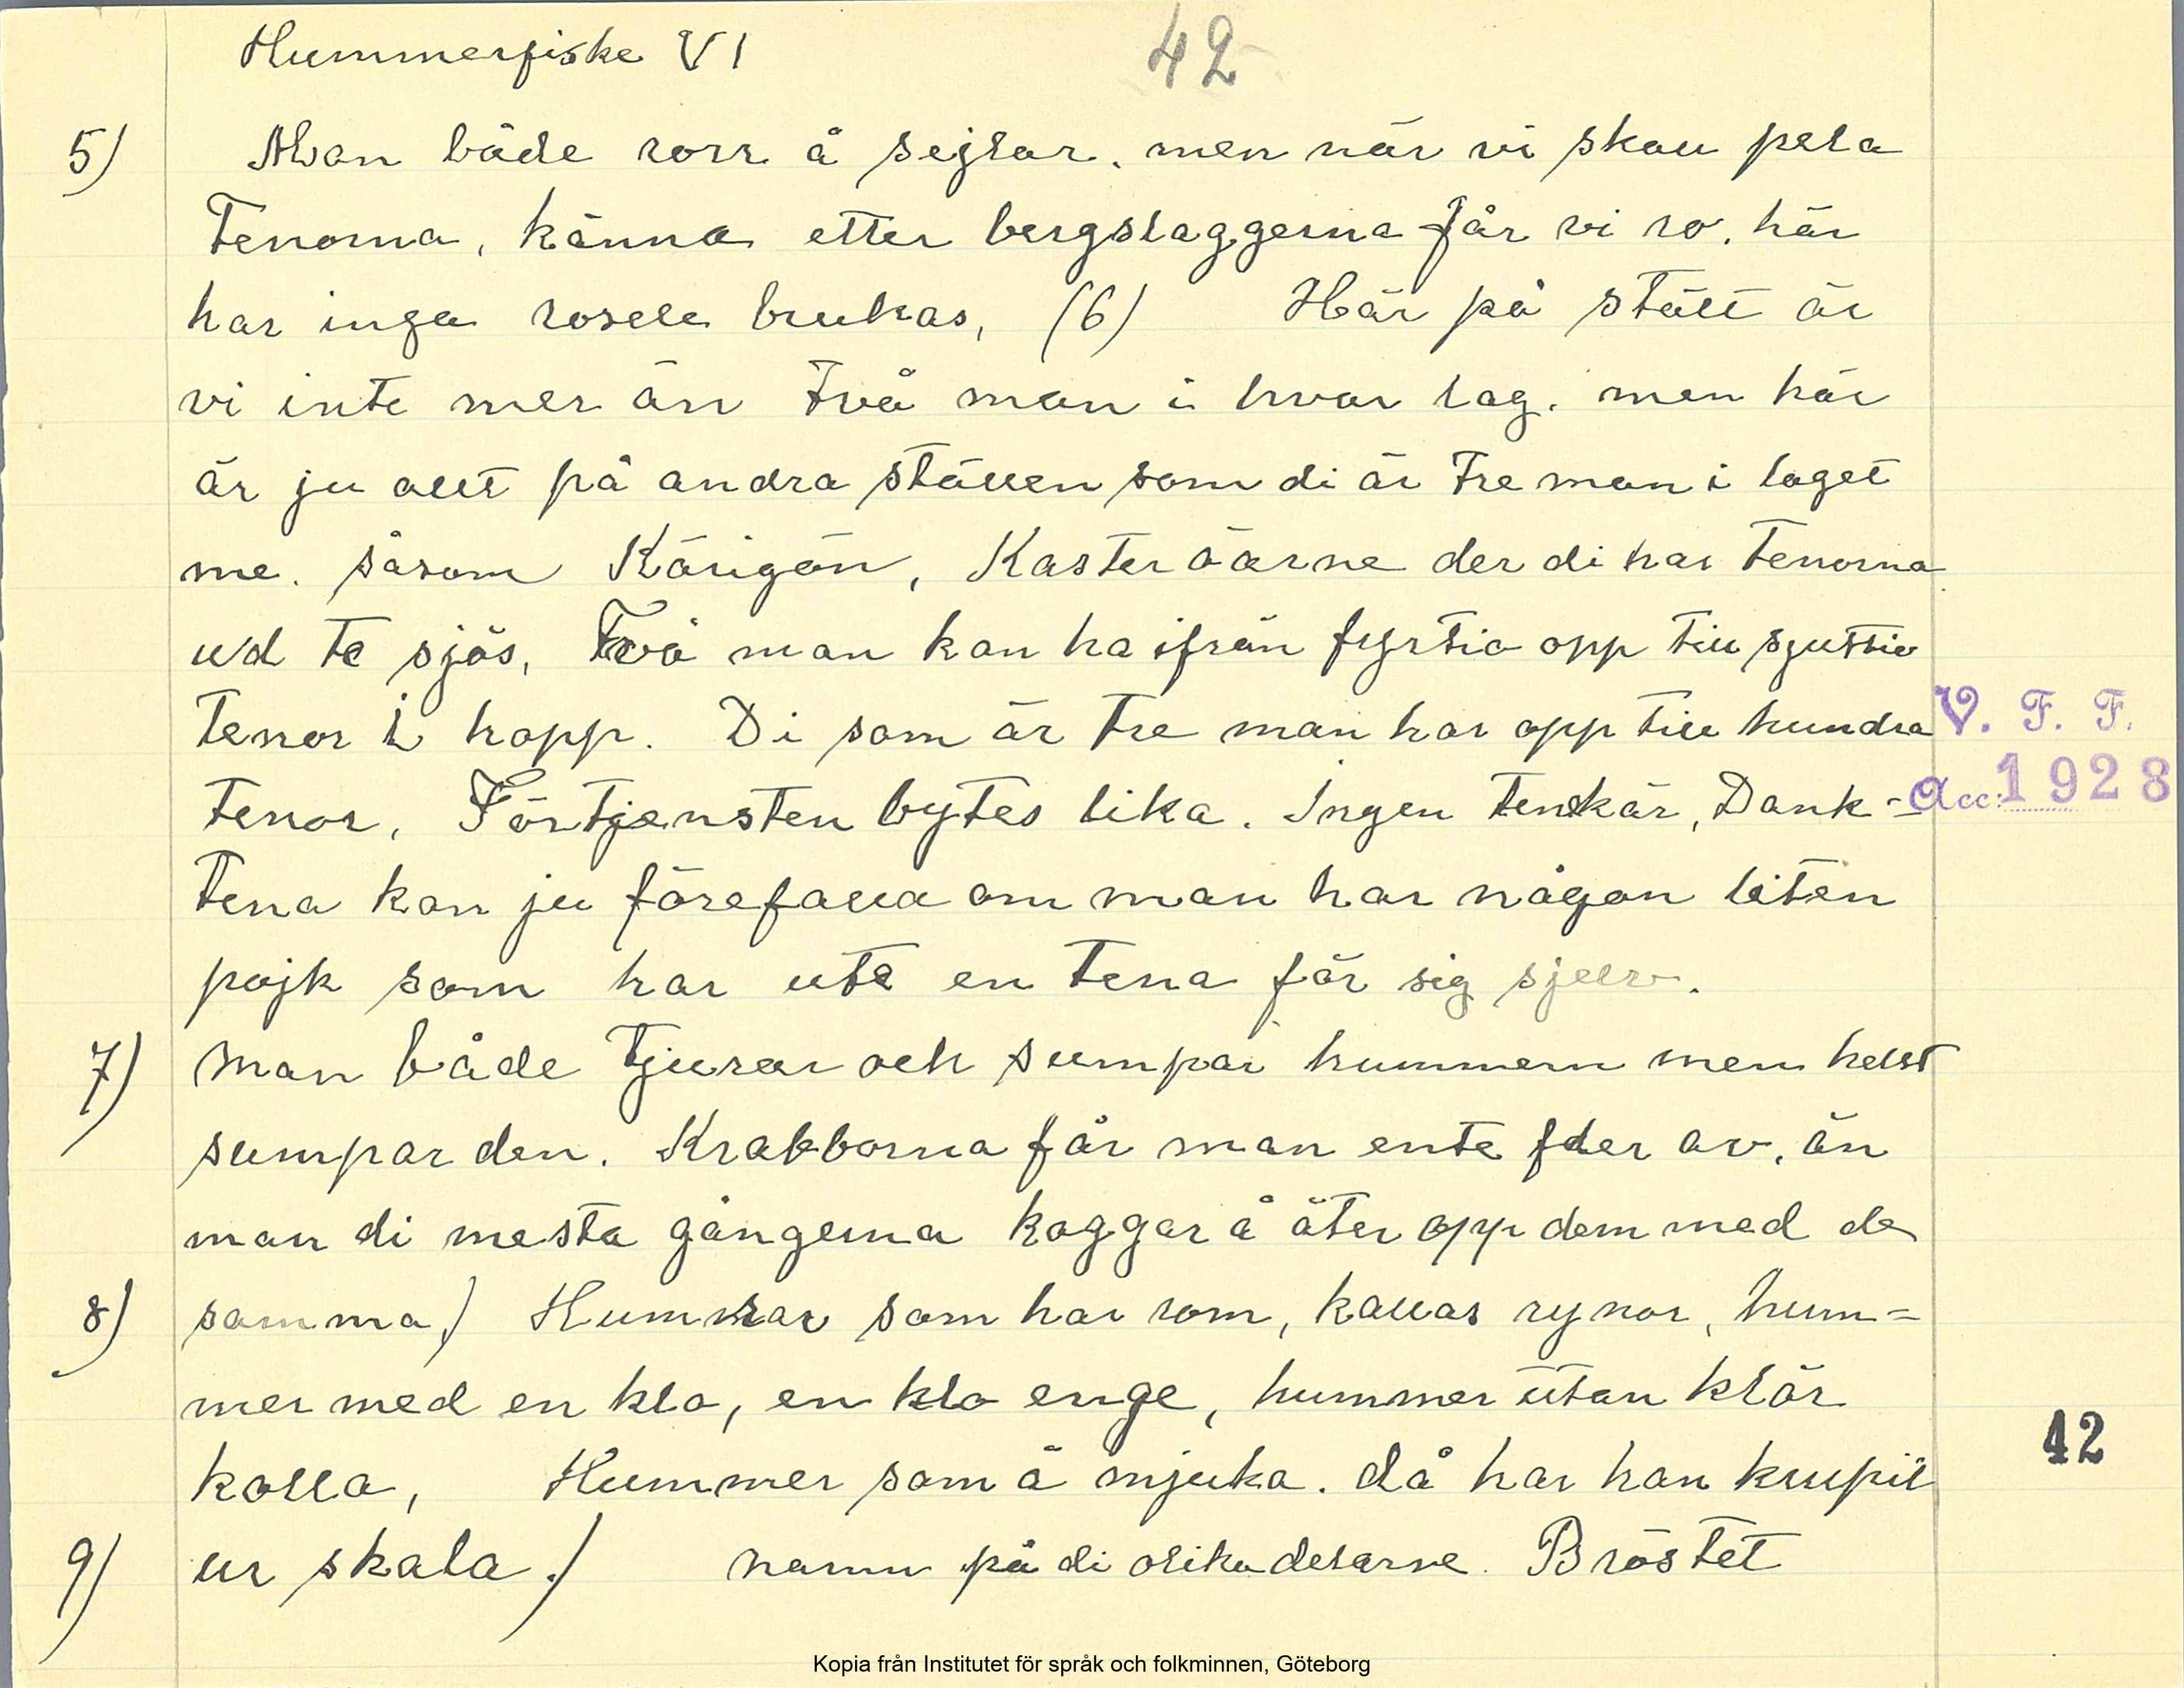 Hummerfiske VI
42
5) Man både rorr å sejlar. men när vi skall pela
Tenorna, känna etter bergslaggerna får vi ro. här
har inga rosele brukas, (6) Här på ställ är
vi inte mer än två man i hvar lag. men här
är ju allt på andra ställen som di är tre man i laget
me. såsom Käringön, Kasteröarne der di har tenorna
ud te sjös, Två man kan ha ifrån fyrtio opp till sjuttio
tenor i hopp. Di som är tre man har opp till hundra
V. F. F.
tenor, Förtjensten bytes lika. Ingen tenkär, Dank-
Acc: 1928
tena kan ju förefalla om man har någon liten
pojk som har ute en tena för sig sjelv.
7) man både tjurar och sumpar hummern men helst
sumpar den. Krabborna får man ente fler av, än
man di mesta gångerna koggar å äter opp dem med de
8) samma) Humrar som har rom, kallas rynor, hum=
mer med en klo, en klo enge, hummer utan klör
kolla, Hummer som ä mjuka. då har han krupit
42
9) ur skala.) namn på di olika delarne. Bröstet
Kopia från Institutet för språk och folkminnen, Göteborg